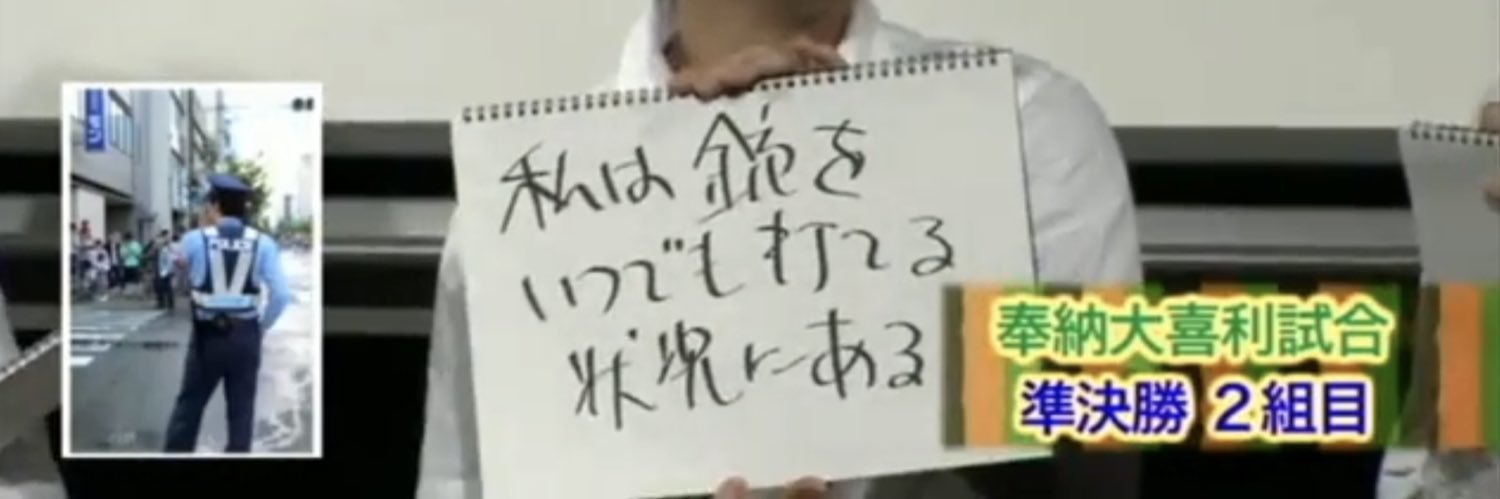 私は銃を
いつでも打てる
状況にある
POLICE
奉納大喜利試合
準決勝 2組目